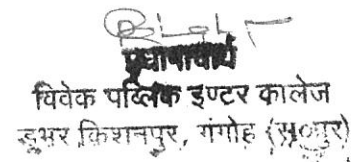 प्रधानाचार्य
विवेक पब्लिक इण्टर कालेज
डूभर किशनपुर, गंगोह (स०पुर)